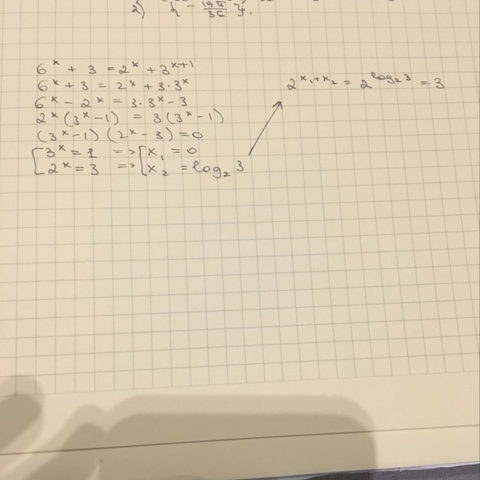 2) {- 19π/36}.
6^x + 3 = 2^x + 3^{x+1}
6^x + 3 = 2^x + 3·3^x
6^x - 2^x = 3·3^x - 3
2^x(3^x-1) = 3(3^x-1)
(3^x-1)(2^x-3)=0
[3^x=1 => [x₁ = 0
2^x=3 => x₂ = log₂3
2^{x₁+x₂} = 2^{log₂3} = 3